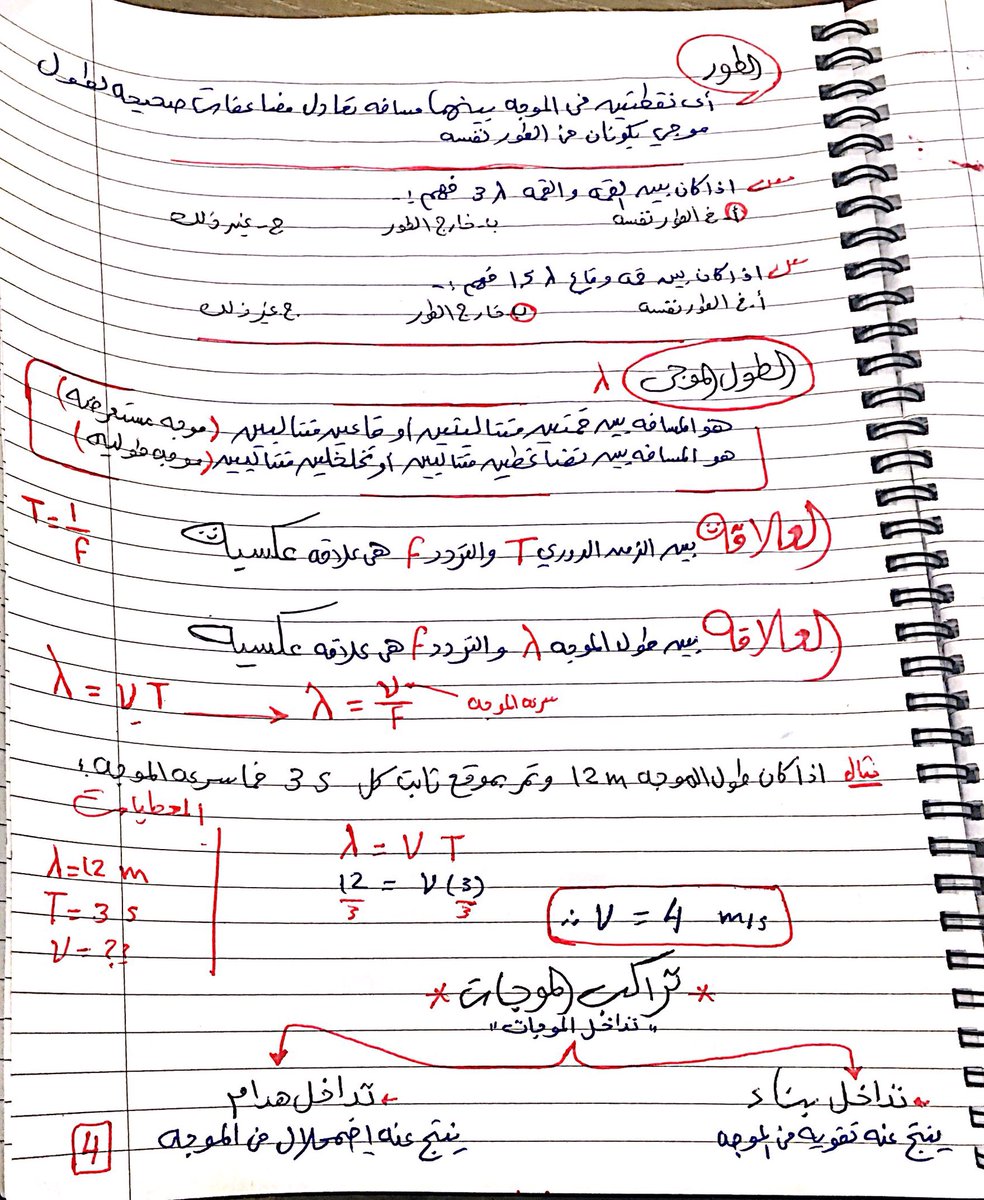 الطور
أي نقطتين في الموجه بينهما مسافه تعادل مضاعفات صحيحه لطول
موجي يكونان في الطور نفسه
اذا كان بين القمه والقمه 3λ فهم :-
أ- في الطور نفسه ب- خارج الطور ج- غير ذلك
اذا كان بين قمه وقاع 1.5λ فهم :-
أ- في الطور نفسه ب- خارج الطور ج- غير ذلك
الطول الموجي λ
هو المسافه بين قمتين متتاليتين او قاعين متتاليين (موجه مستعرضه)
هو المسافه بين تضاغطين متتاليين او تخلخلين متتاليين (موجه طوليه)
العلاقة بين الزمن الدوري T والتردد f هي علاقه عكسيه
T = 1/F
العلاقه بين طول الموجه λ والتردد f هي علاقه عكسيه
λ = v T → λ = v/F سرعه الموجه
مثال اذا كان طول الموجه 12 m وتمر بموقع ثابت كل 3 s فما سرعه الموجه؟
المعطيات
λ = 12 m
T = 3 s
v = ??
λ = v T
12/3 = v (3)/3
∴ v = 4 m/s
* تراكب الموجات *
"تداخل الموجات"
تداخل بناء
ينتج عنه تقويه في الموجه
تداخل هدام
ينتج عنه اضمحلال في الموجه
4